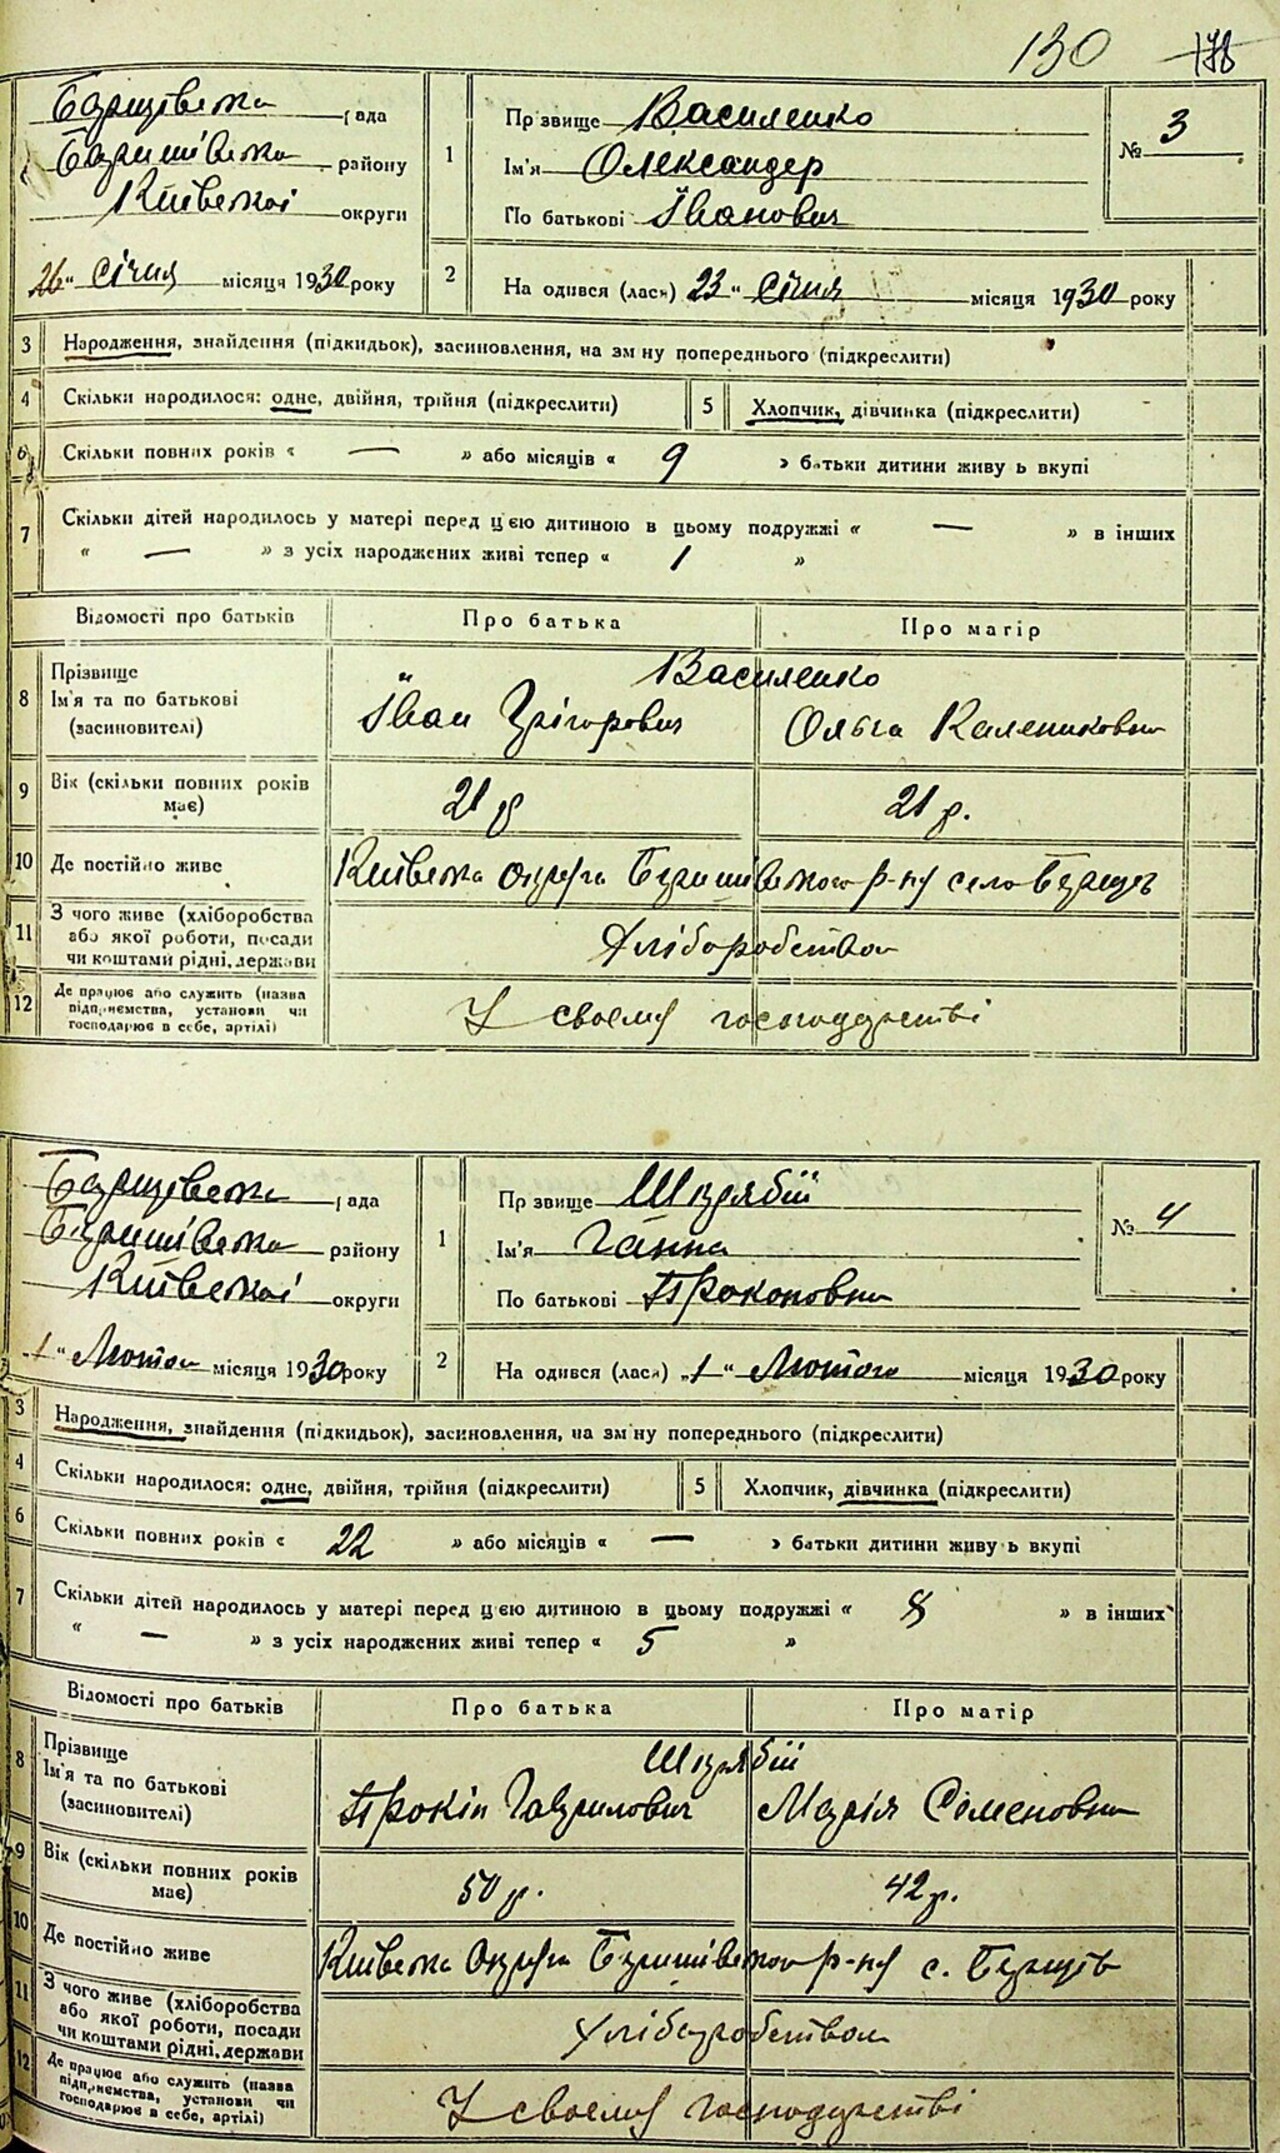 130 178
Борщівська рада
Баришівська району
Київської округи
26 " січня місяця 1930 року
1
Пр звище Василенко
Ім'я Олександер
По батькові Іванович
№ 3
2
На одився (лася) 23 " січня місяця 1930 року
3 Народження, знайдення (підкидьок), засиновлення, на зм ну попереднього (підкреслити)
4 Скільки народилося: одне, двійня, трійня (підкреслити) 5 Хлопчик, дівчинка (підкреслити)
6 Скільки повних років « — » або місяців « 9 » батьки дитини живу ь вкупі
7 Скільки дітей народилось у матері перед цією дитиною в цьому подружжі « — » в інших
« — » з усіх народжених живі тепер « 1 »
Відомості про батьків Про батька Про матір
8 Прізвище Василенко
Ім'я та по батькові Іван Грігорович Ольга Калениковна
(засновителі)
9 Вік (скільки повних років має) 21 р 21 р.
10 Де постійно живе Київська округа Баришівського р-ну село Борщів
11 З чого живе (хліборобства
або якої роботи, посади Хліборобством
чи коштами рідні, держави
12 Де працює або служить (назва
підприємства, установи чи У своєму господарстві
господарює в себе, артілі)
Борщівська рада
Баришівська району
Київської округи
„1" Лютого місяця 1930 року
1
Пр звище Шкрябій
Ім'я Ганна
По батькові Прокоповна
№ 4
2
На одився (лася) „1" Лютого місяця 1930 року
3 Народження, знайдення (підкидьок), засиновлення, на зм ну попереднього (підкреслити)
4 Скільки народилося: одне, двійня, трійня (підкреслити) 5 Хлопчик, дівчинка (підкреслити)
6 Скільки повних років « 22 » або місяців « — » батьки дитини живу ь вкупі
7 Скільки дітей народилось у матері перед цією дитиною в цьому подружжі « 8 » в інших
« — » з усіх народжених живі тепер « 5 »
Відомості про батьків Про батька Про матір
8 Прізвище Шкрябій
Ім'я та по батькові Прокіп Гаврилович Марія Семеновна
(засиновителі)
9 Вік (скільки повних років має) 50 р. 42 р.
10 Де постійно живе Київська округа Баришівського р-ну с. Борщів
11 З чого живе (хліборобства
або якої роботи, посади Хліборобством
чи коштами рідні, держави
12 Де працює або служить (назва
підприємства, установи чи У своєму господарстві
господарює в себе, артілі)